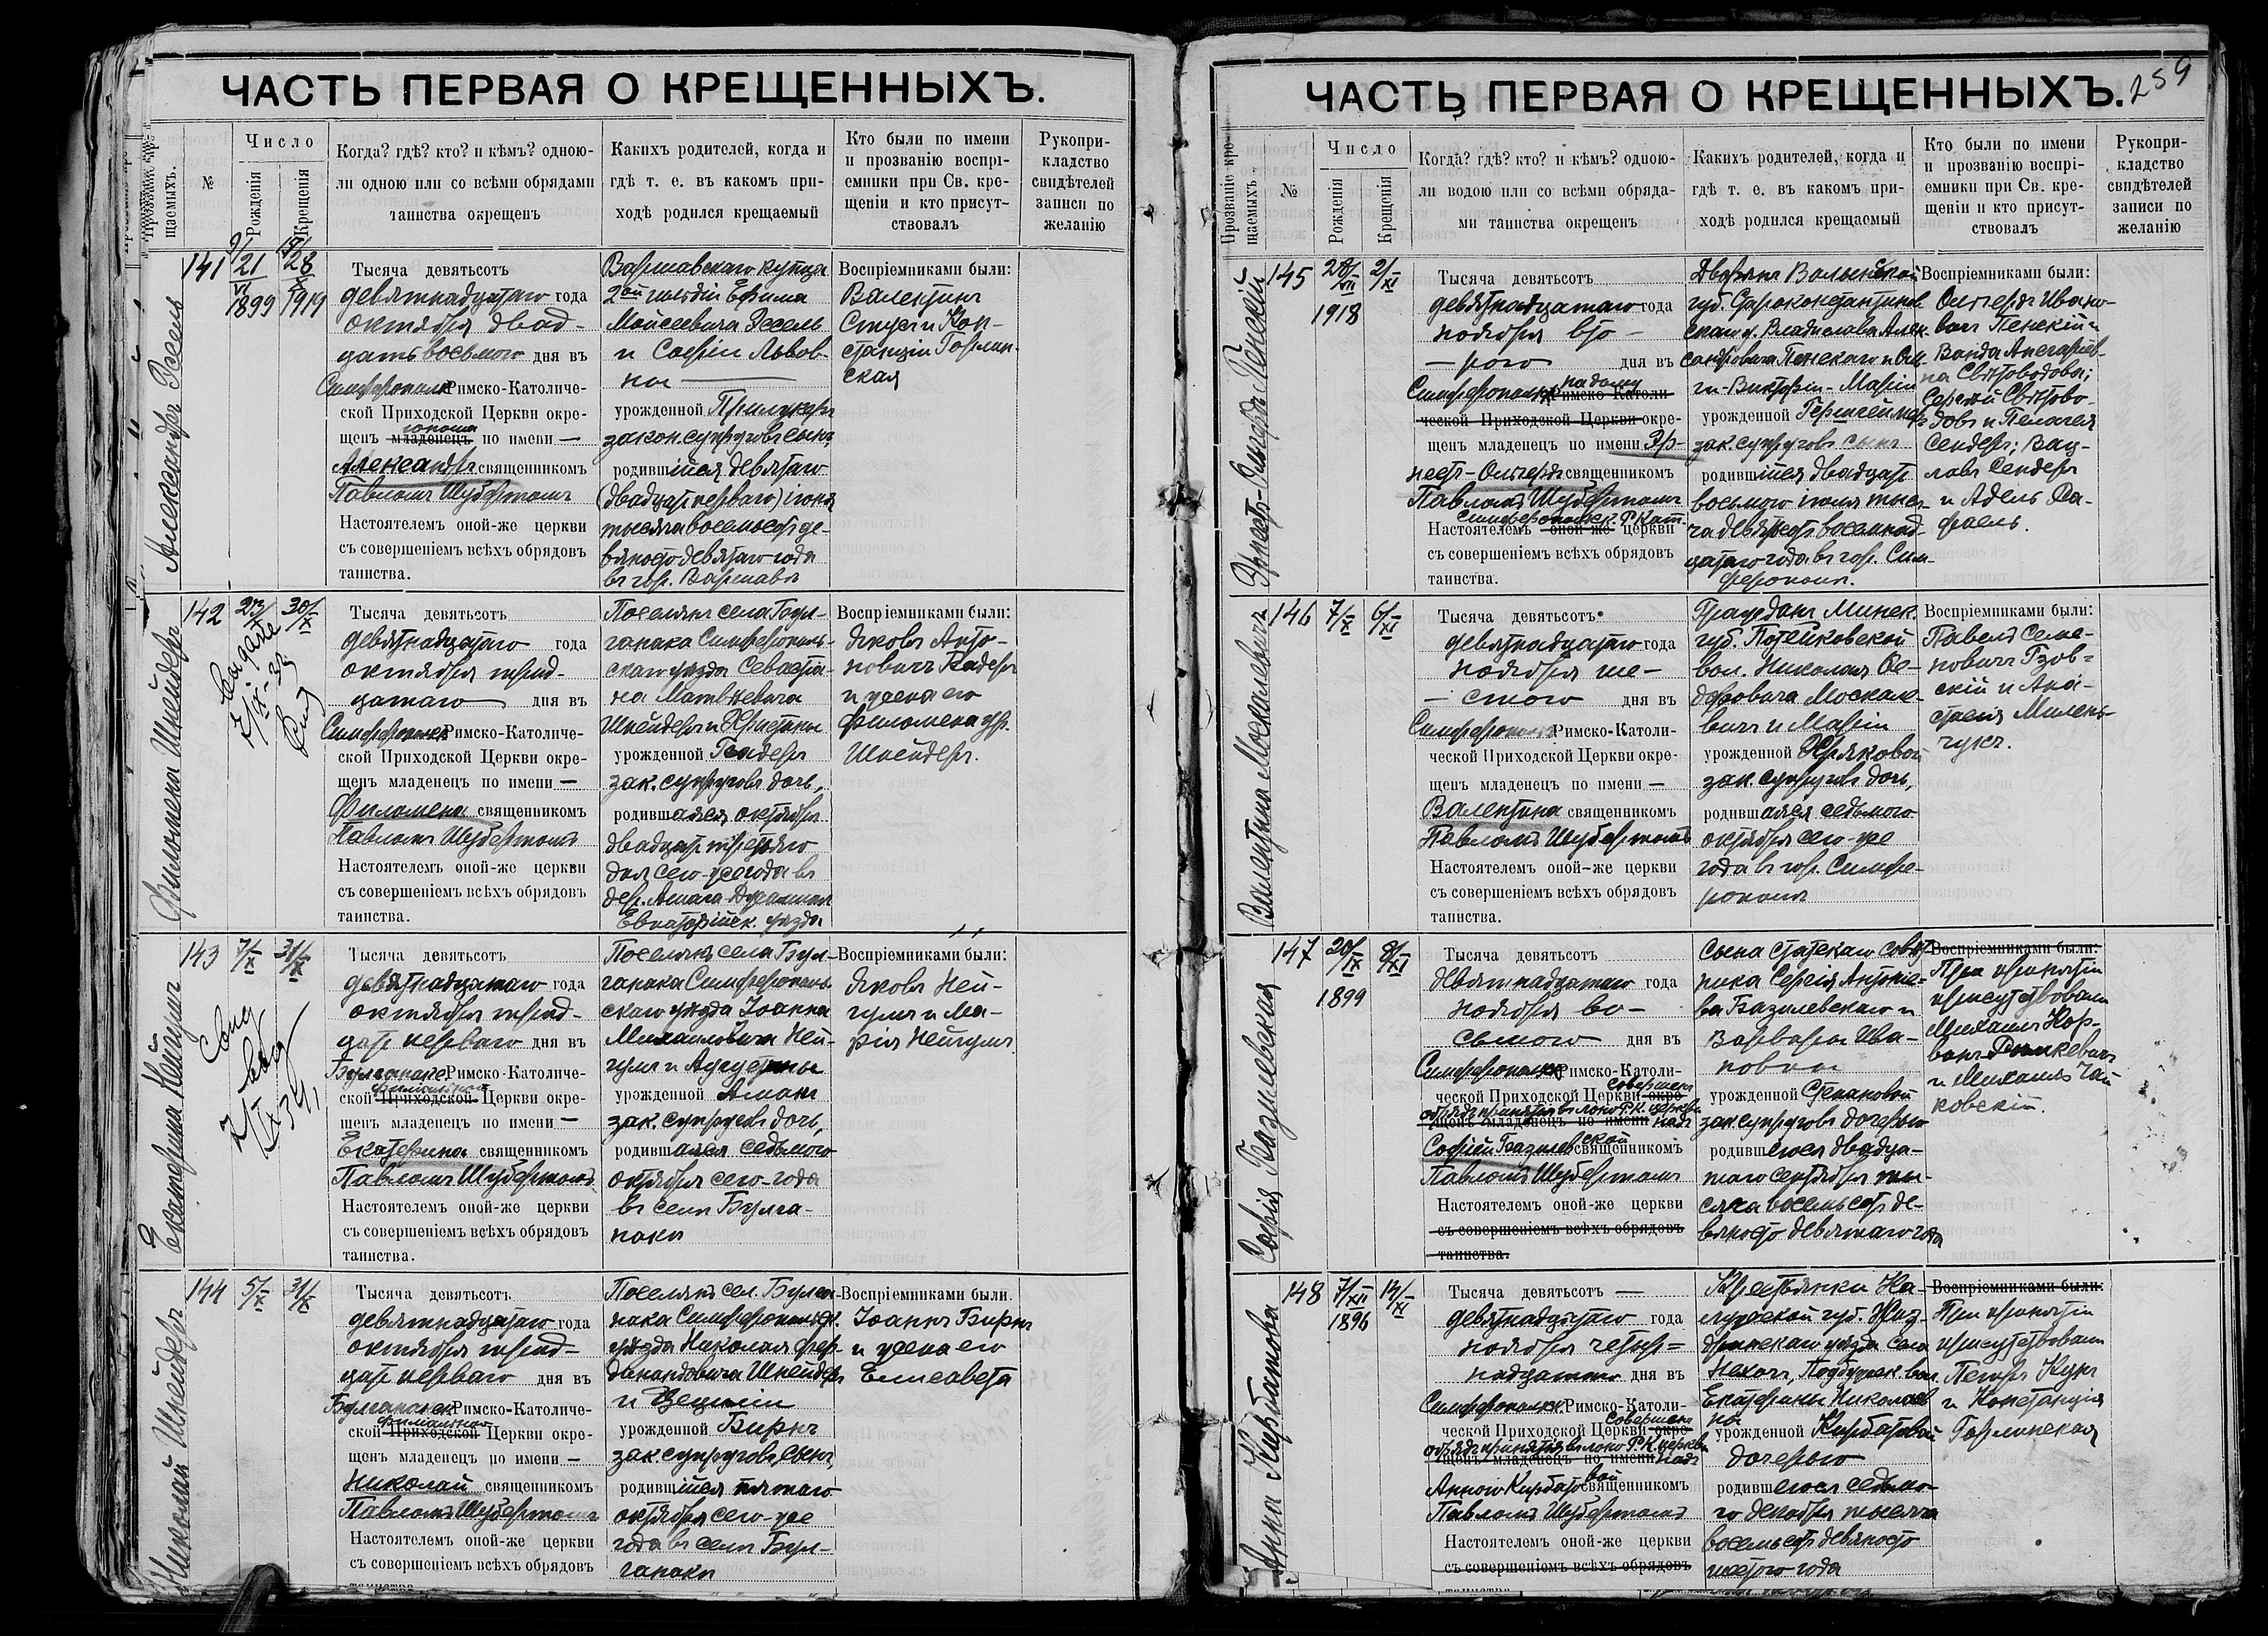 ЧАСТЬ ПЕРВАЯ О КРЕЩЕННЫХЪ.
щаемыхъ.
№
Число
Рожденія
Крещенія
Когда? гдѣ? кто? и кѣмъ? одною-
ли одною или со всѣми обрядами
таинства окрещенъ
Какихъ родителей, когда и
гдѣ т. е. въ какомъ при-
ходѣ родился крещаемый
Кто были по имени
и прозванію воспрі-
емники при Св. кре-
щеніи и кто присут-
ствовалъ
Рукопри-
кладство
свидѣтелей
записи по
желанію
Александръ Эссель
141
9/ 21
VI
1899
15/ 28
X
1919
Тысяча девятьсотъ
девятнадцатаго года
октября двад-
цать восьмого дня въ
Симферопольск. Римско-Католиче-
ской Приходской Церкви окре-
юноша
щенъ младенецъ по имени —
Александръ священникомъ
Павломъ Шубертомъ
Настоятелемъ оной-же церкви
съ совершеніемъ всѣхъ обрядовъ
таинства.
Варшавскаго купца
2ой гильдіи Ефима
Моисеевича Эссель
и Софіи Львов-
ны
урожденной
закон. супруговъ сынъ
родившійся девятаго
(двадцать перваго) іюня
тысяча восемьсотъ де-
вяносто девятаго года
въ гор. Варшавѣ
Воспріемниками были:
Валентинъ
и Кон-
станція Горлин-
ская
Филомена Шнейдеръ
142
23/X
30/X
Тысяча девятьсотъ
девятнадцатаго года
октября трид-
цатаго дня въ
Симферопольск. Римско-Католиче-
ской Приходской Церкви окре-
щенъ младенецъ по имени —
Филомена священникомъ
Павломъ Шубертомъ
Настоятелемъ оной-же церкви
съ совершеніемъ всѣхъ обрядовъ
таинства.
Поселянъ села Бул-
ганака Симферополь-
скаго уѣзда Севастья-
на Матвѣевича
Шнейдеръ и Христины
урожденной
зак. супруговъ дочь,
родившаяся октября
двадцать третьяго
дня сего-же года въ
дер.
Евпаторійск. уѣзда
Воспріемниками были:
Яковъ Анто-
новичъ
и жена его
Филомена ур.
Шнейдеръ.
Екатерина Нейгумъ
143
7/X
31/X
Тысяча девятьсотъ
девятнадцатаго года
октября трид-
цать перваго дня въ
Булганакск. Римско-Католиче-
филіальной
ской Приходской Церкви окре-
щенъ младенецъ по имени —
Екатерина священникомъ
Павломъ Шубертомъ
Настоятелемъ оной-же церкви
съ совершеніемъ всѣхъ обрядовъ
таинства.
Поселянъ села Бул-
ганака Симферополь-
скаго уѣзда Іоанна
Михайловича Ней-
гумъ и Августины
урожденной Аманъ
зак. супруговъ дочь,
родившаяся седьмого
октября сего-года
въ селѣ Булга-
накѣ
Воспріемниками были:
Яковъ Ней-
гумъ и Ма-
рія Нейгумъ
Николай Шнейдеръ
144
5/X
31/X
Тысяча девятьсотъ
девятнадцатаго года
октября трид-
цать перваго дня въ
Булганакск. Римско-Католиче-
филіальной
ской Приходской Церкви окре-
щенъ младенецъ по имени —
Николай священникомъ
Павломъ Шубертомъ
Настоятелемъ оной-же церкви
съ совершеніемъ всѣхъ обрядовъ
Поселянъ сел. Булга-
нака Симферопольск.
уѣзда Николая Фер-
динандовича Шнейдеръ
и Цециліи
урожденной Биркъ
зак. супруговъ сынъ
родившійся пятаго
октября сего-же
года въ селѣ Бул-
ганакѣ
Воспріемниками были.
Іоаннъ Биркъ
и жена его
Елисавета
ЧАСТЬ ПЕРВАЯ О КРЕЩЕННЫХЪ.
259
Прозваніе кре-
щаемыхъ.
№
Число
Рожденія
Крещенія
Когда? гдѣ? кто? и кѣмъ? одною-
ли водою или со всѣми обряда-
ми таинства окрещенъ
Какихъ родителей, когда и
гдѣ т. е. въ какомъ при-
ходѣ родился крещаемый
Кто были по имени
и прозванію воспрі-
емники при Св. кре-
щеніи и кто присут-
ствовалъ
Рукопри-
кладство
свидѣтелей
записи по
желанію
Эрнестъ-Ольгердъ Пенскій
145
28/VII
1918
2/XI
Тысяча девятьсотъ
девятнадцатаго года
ноября вто-
— рого дня въ
Симферополѣ на дому Римско-Католи-
ческой Приходской Церкви окре-
щенъ младенецъ по имени Эр-
нестъ-Ольгердъ священникомъ
Павломъ Шубертомъ
Симферопольск. Р. Кат.
Настоятелемъ оной-же церкви
съ совершеніемъ всѣхъ обрядовъ
таинства.
Дворянъ Волынской
губ. Староконстантинов-
скаго у. Владислава Алек-
сандровича Пенскаго и
Викторіи-Маріи
урожденной
зак. супруговъ сынъ
родившійся двадцать
восьмого іюля тыся-
ча девятьсотъ восемнад-
цатаго года въ гор. Сим-
ферополѣ.
Воспріемниками были:
Ольгердъ Ивано-
вичъ Пенскій и
Ванда
на Свѣтоводова;
Сергѣй Свѣтово-
довъ и Пелагея
Сендеръ; Вац-
лавъ Сендеръ
и Адель Ра-
фаель.
Валентина Москалевичъ
146
7/X
6/XI
Тысяча девятьсотъ
девятнадцатаго года
ноября ше-
— стого дня въ
Симферопольск. Римско-Католи-
ческой Приходской Церкви окре-
щенъ младенецъ по имени —
Валентина священникомъ
Павломъ Шубертомъ
Настоятелемъ оной-же церкви
съ совершеніемъ всѣхъ обрядовъ
таинства.
Гражданъ Минск.
губ. Потейковской
вол. Николая Ѳе-
доровича Москале-
вичъ и Маріи
урожденной Хряковой
зак. супруговъ дочь,
родившаяся седьмого
октября сего-же
года въ гор. Симфе-
рополѣ
Воспріемниками были:
Павелъ Семе-
новичъ Гзов-
скій и Ана-
стасія Милень-
чукъ.
Софія Базилевская
147
20/IX
1899
8/XI
Тысяча девятьсотъ
девятнадцатаго года
ноября во-
сьмого дня въ
Симферопольск. Римско-Католи-
ческой Приходской Церкви окре-
совершенъ
обрядъ принятія въ лоно Р.К. церкви
щенъ младенецъ по имени надъ
Софіей Базилевской священникомъ
Павломъ Шубертомъ
Настоятелемъ оной-же церкви
съ совершеніемъ всѣхъ обрядовъ
таинства.
Сына статскаго совѣт-
ника Сергія Антоніе-
ва Базилевскаго и
Варвары Ива-
новны
урожденной
зак. супруговъ дочерью
родившеюся двадца-
таго сентября ты-
сяча восемьсотъ де-
вяносто девятаго года
Воспріемниками были:
При принятіи
присутствовали
Михаилъ Кор-
винъ-Римкевичъ
и Михаилъ Чай-
ковскій.
Анна Кирбатова
148
7/XII
1896
14/XI
Тысяча девятьсотъ —
девятнадцатаго года
ноября четыр=
надцатаго дня въ
Симферопольск. Римско-Католи-
ческой Приходской Церкви окре-
совершенъ
обрядъ принятія въ лоно Р.К. церкви
щенъ младенецъ по имени надъ
Анною Кирбатовой священникомъ
Павломъ Шубертомъ
Настоятелемъ оной-же церкви
съ совершеніемъ всѣхъ обрядовъ
Крестьянки Ка-
лужской губ. Жиз-
дринскаго уѣзда села
вол.
Екатерины Николаев-
ны
урожденной Кирбатовой
дочерью
родившеюся седьмо-
го декабря тысяча
восемьсотъ девяносто
шестого года
Воспріемниками были:
При принятіи
присутствовали
Петръ Кунъ
и Констанція
Горлинская